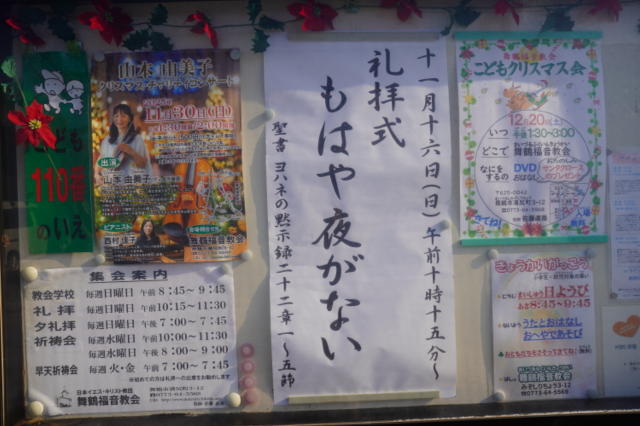 こども
110番
のいえ
山本 由美子
クリスマス・チャリティコンサート
11月30日(日)
出演
山本 由美子
ピアニスト
西村 佳子
舞鶴福音教会
集会案内
教会学校 毎週日曜日 午前 8:45～9:45
礼拝 毎週日曜日 午前10:15～11:30
夕礼拝 毎週日曜日 午後 7:00～7:45
祈祷会 毎週水曜日 午前10:00～11:30
毎週水曜日 午後 8:00～9:00
早天祈祷会 毎週火・金 午前 7:00～7:45
日本イエス・キリスト教団
舞鶴福音教会
十一月十六日(日)午前十時十五分～
礼拝式
もはや夜がない
聖書 ヨハネの黙示録二十二章一～五節
舞鶴福音教会
こどもクリスマス会
12/20(土)
午後1:30～3:00
いつ
どこで
舞鶴福音教会
なにを
するの
DVD
おはなし
サンタクロース
のプレゼント
〒625-0042
入場
無料
きてね!
☎0773-64-5568
きょうかいがっこう
まいしゅう日ようび
あさ8:45～9:45
うたとおはなし
おへやであそび
おともだちもさそってきてね!
舞鶴福音教会
☎0773-64-5568